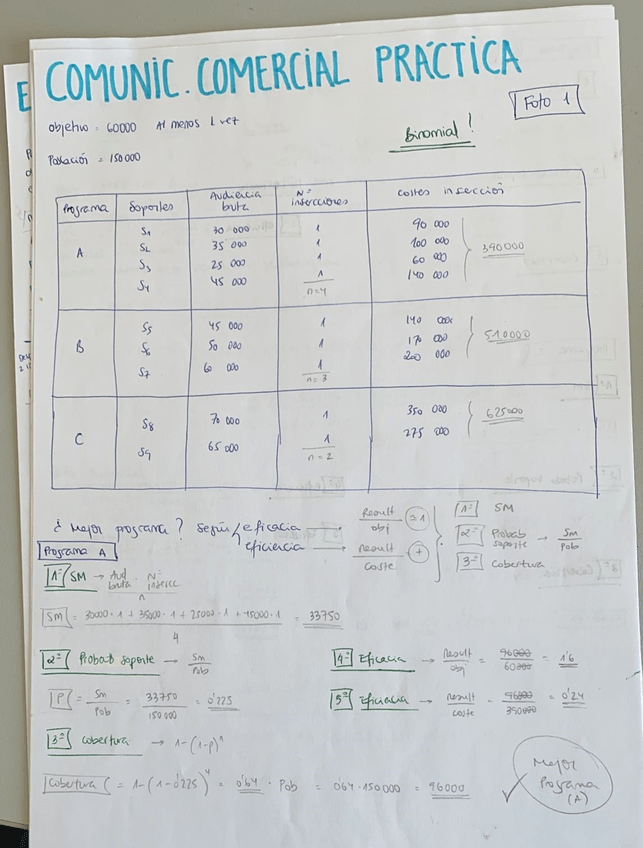 COMUNIC. COMERCIAL PRÁCTICA
Foto 1
objetivo = 60000 Al menos 1 vez
Binomial!
Población = 150 000
Programa Soportes Audiencia bruta Nº inserciones Costes inserción
A
S1 30 000 1 90 000
S2 35 000 1 100 000
S3 25 000 1 60 000
S4 45 000 1 140 000
n=4
390000
B
S5 45 000 1 140 000
S6 50 000 1 170 000
S7 60 000 1 200 000
n=3
510000
C
S8 70 000 1 350 000
S9 65 000 1 275 000
n=2
625000
¿Mejor programa? Según eficacia Result / obj = 1
eficiencia Result / coste +
1º SM
2º Probab soporte → Sm / Pob
3º Cobertura
Programa A
1º SM → Aud bruta · Nº inserc / n
SM = 30000·1 + 35000·1 + 25000·1 + 45000·1 / 4 = 33750
2º Probab soporte → Sm / Pob
P = Sm / Pob = 33750 / 150 000 = 0'225
3º Cobertura → 1-(1-p)^n
Cobertura = 1-(1-0'225)^4 = 0'64 · Pob = 0'64 · 150.000 = 96000
4º Eficacia → Result / obj = 96000 / 60000 = 1'6
5º Eficiacia → result / coste = 96000 / 390000 = 0'24
Mejor Programa (A)